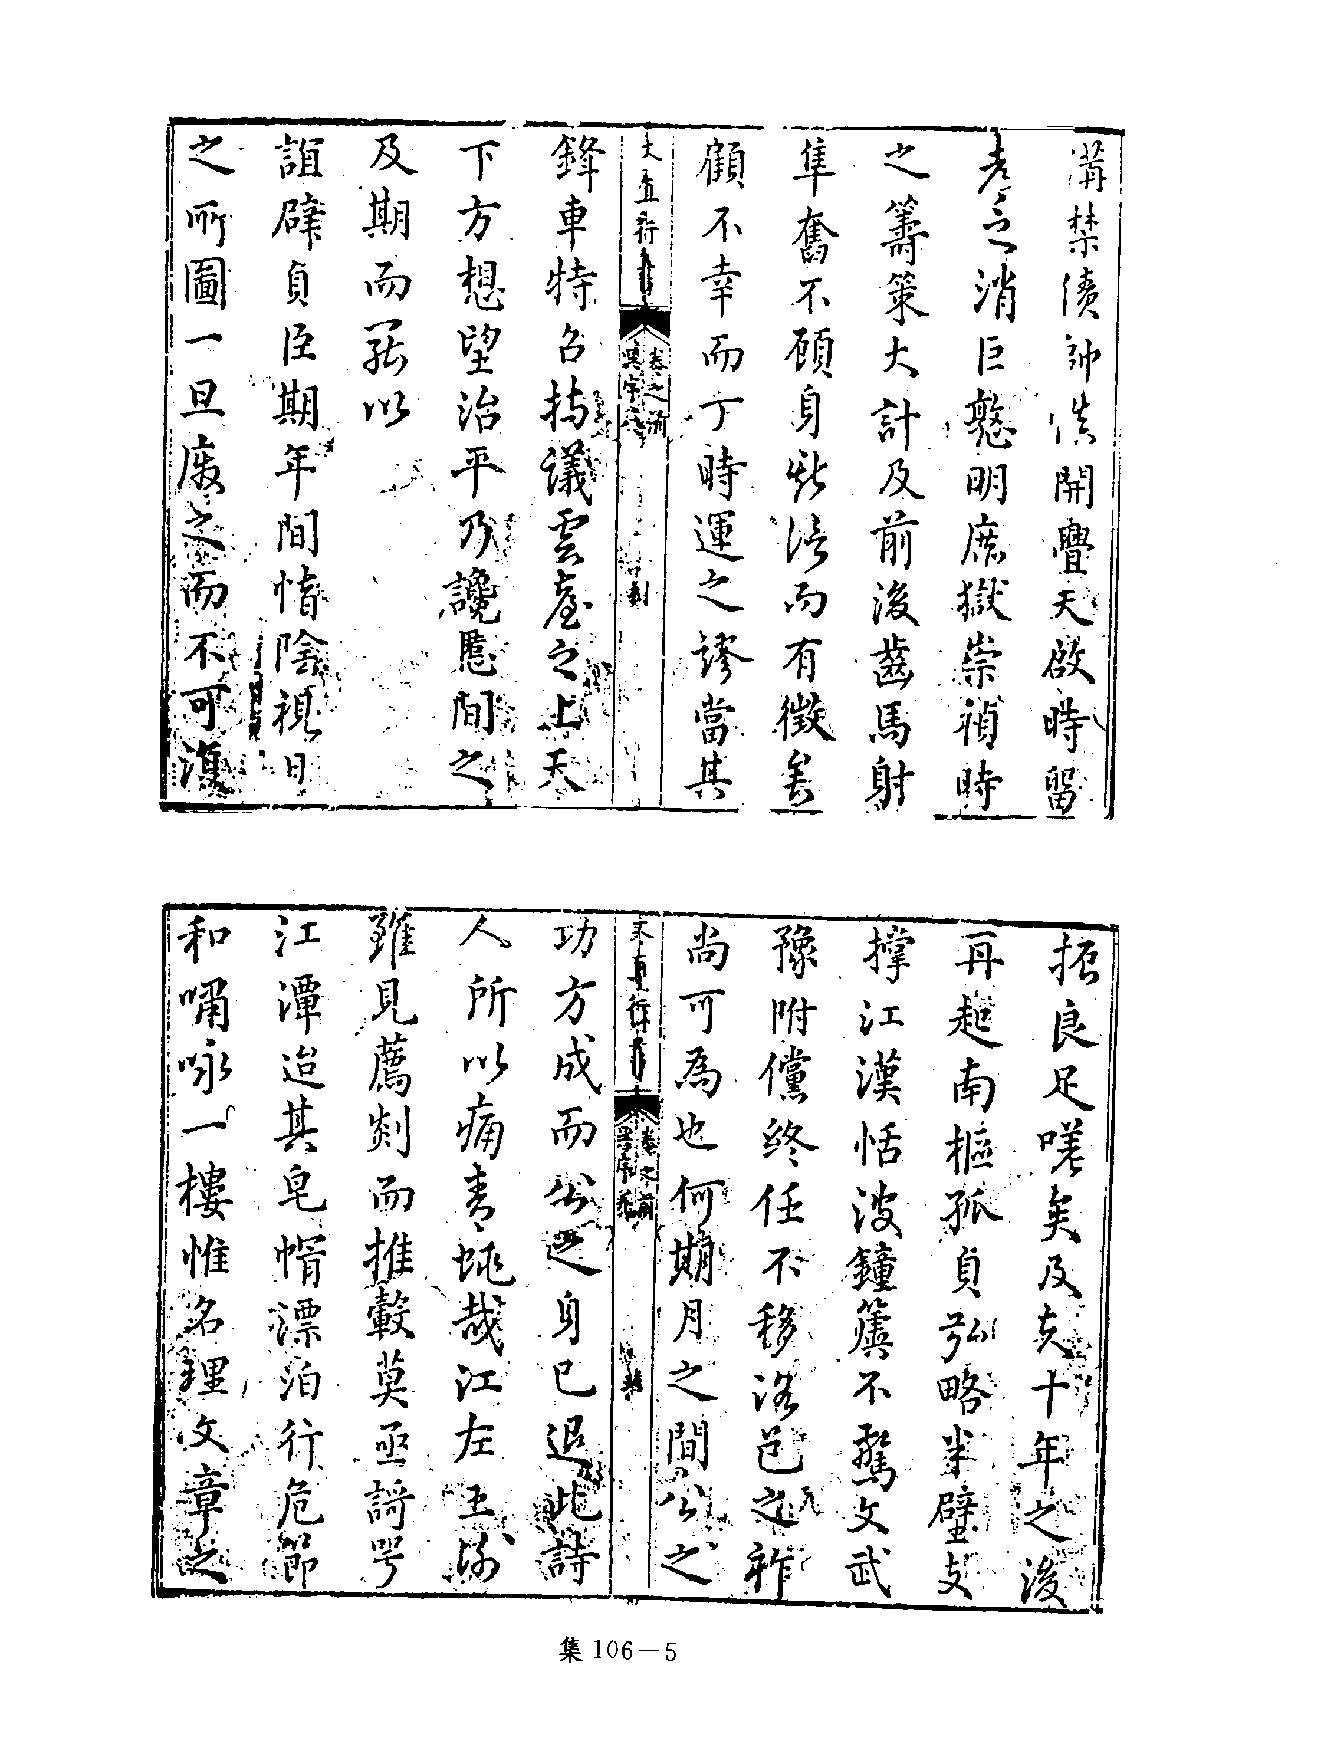 溝禁債帥俱開疊天啟時留
考之消巨憝明庶獄崇禎時
之籌策大計及前後齒馬射
隼奮不顧身

而有徵矣
顧不幸而丁時運之謬當其
大直行書
鋒車特召持議雲臺之上天
下方想望治平乃讒慝間之
及期而罷以
誼辟貞臣期年間情陰視日
之所圖一旦廢之而不可復
振良足嗟矣及去十年之後
再起南樞孤貞弘略半壁支
撐江漢恬波鐘簴不驚文武
豫附儻終任不移洛邑之祚
尚可為也何期月之間公之
大直行書
功方成而公之身已退此詩
人所以痛青蠅哉江左王謝
雖見薦剡而推轂莫亟諤咢
江潭迨其皂帽漂泊行危節
和嘯咏一樓惟名理文章之
集 106－5